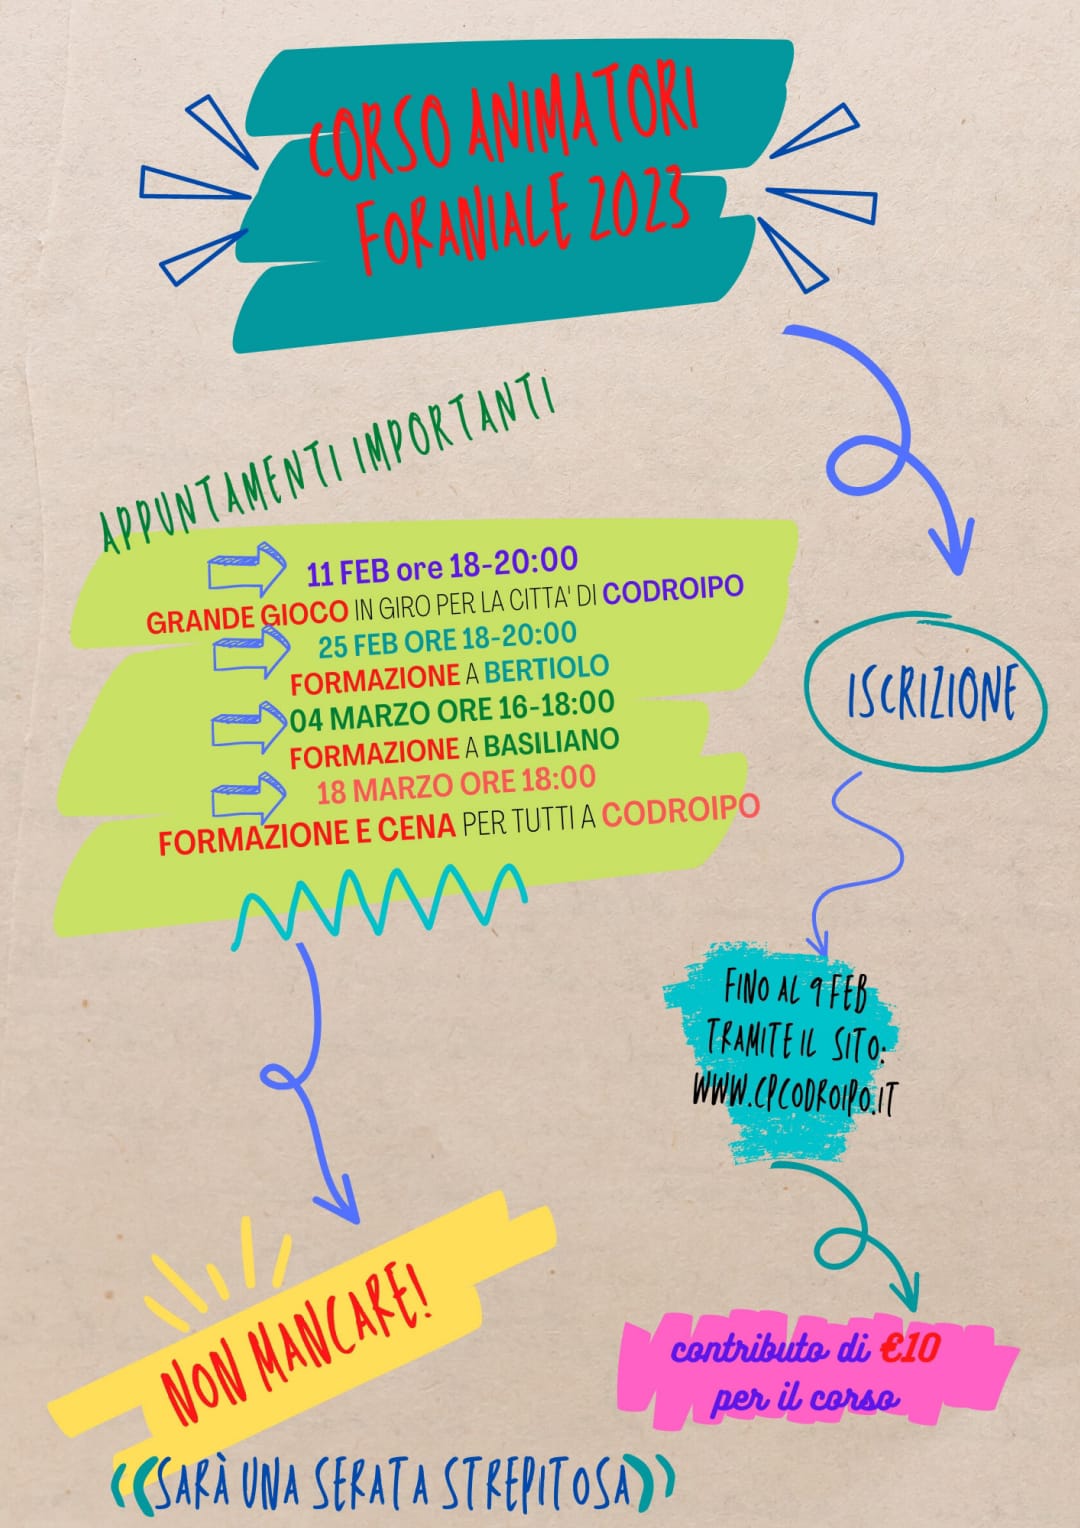 CORSO ANIMATORI
FORANIALE 2023
APPUNTAMENTI IMPORTANTI
11 FEB ore 18-20:00
GRANDE GIOCO IN GIRO PER LA CITTA' DI CODROIPO
25 FEB ORE 18-20:00
FORMAZIONE A BERTIOLO
04 MARZO ORE 16-18:00
FORMAZIONE A BASILIANO
18 MARZO ORE 18:00
FORMAZIONE E CENA PER TUTTI A CODROIPO
ISCRIZIONE
FINO AL 9 FEB
TRAMITE IL SITO:
WWW.CPCODROIPO.IT
contributo di €10
per il corso
NON MANCARE!
((SARÀ UNA SERATA STREPITOSA))